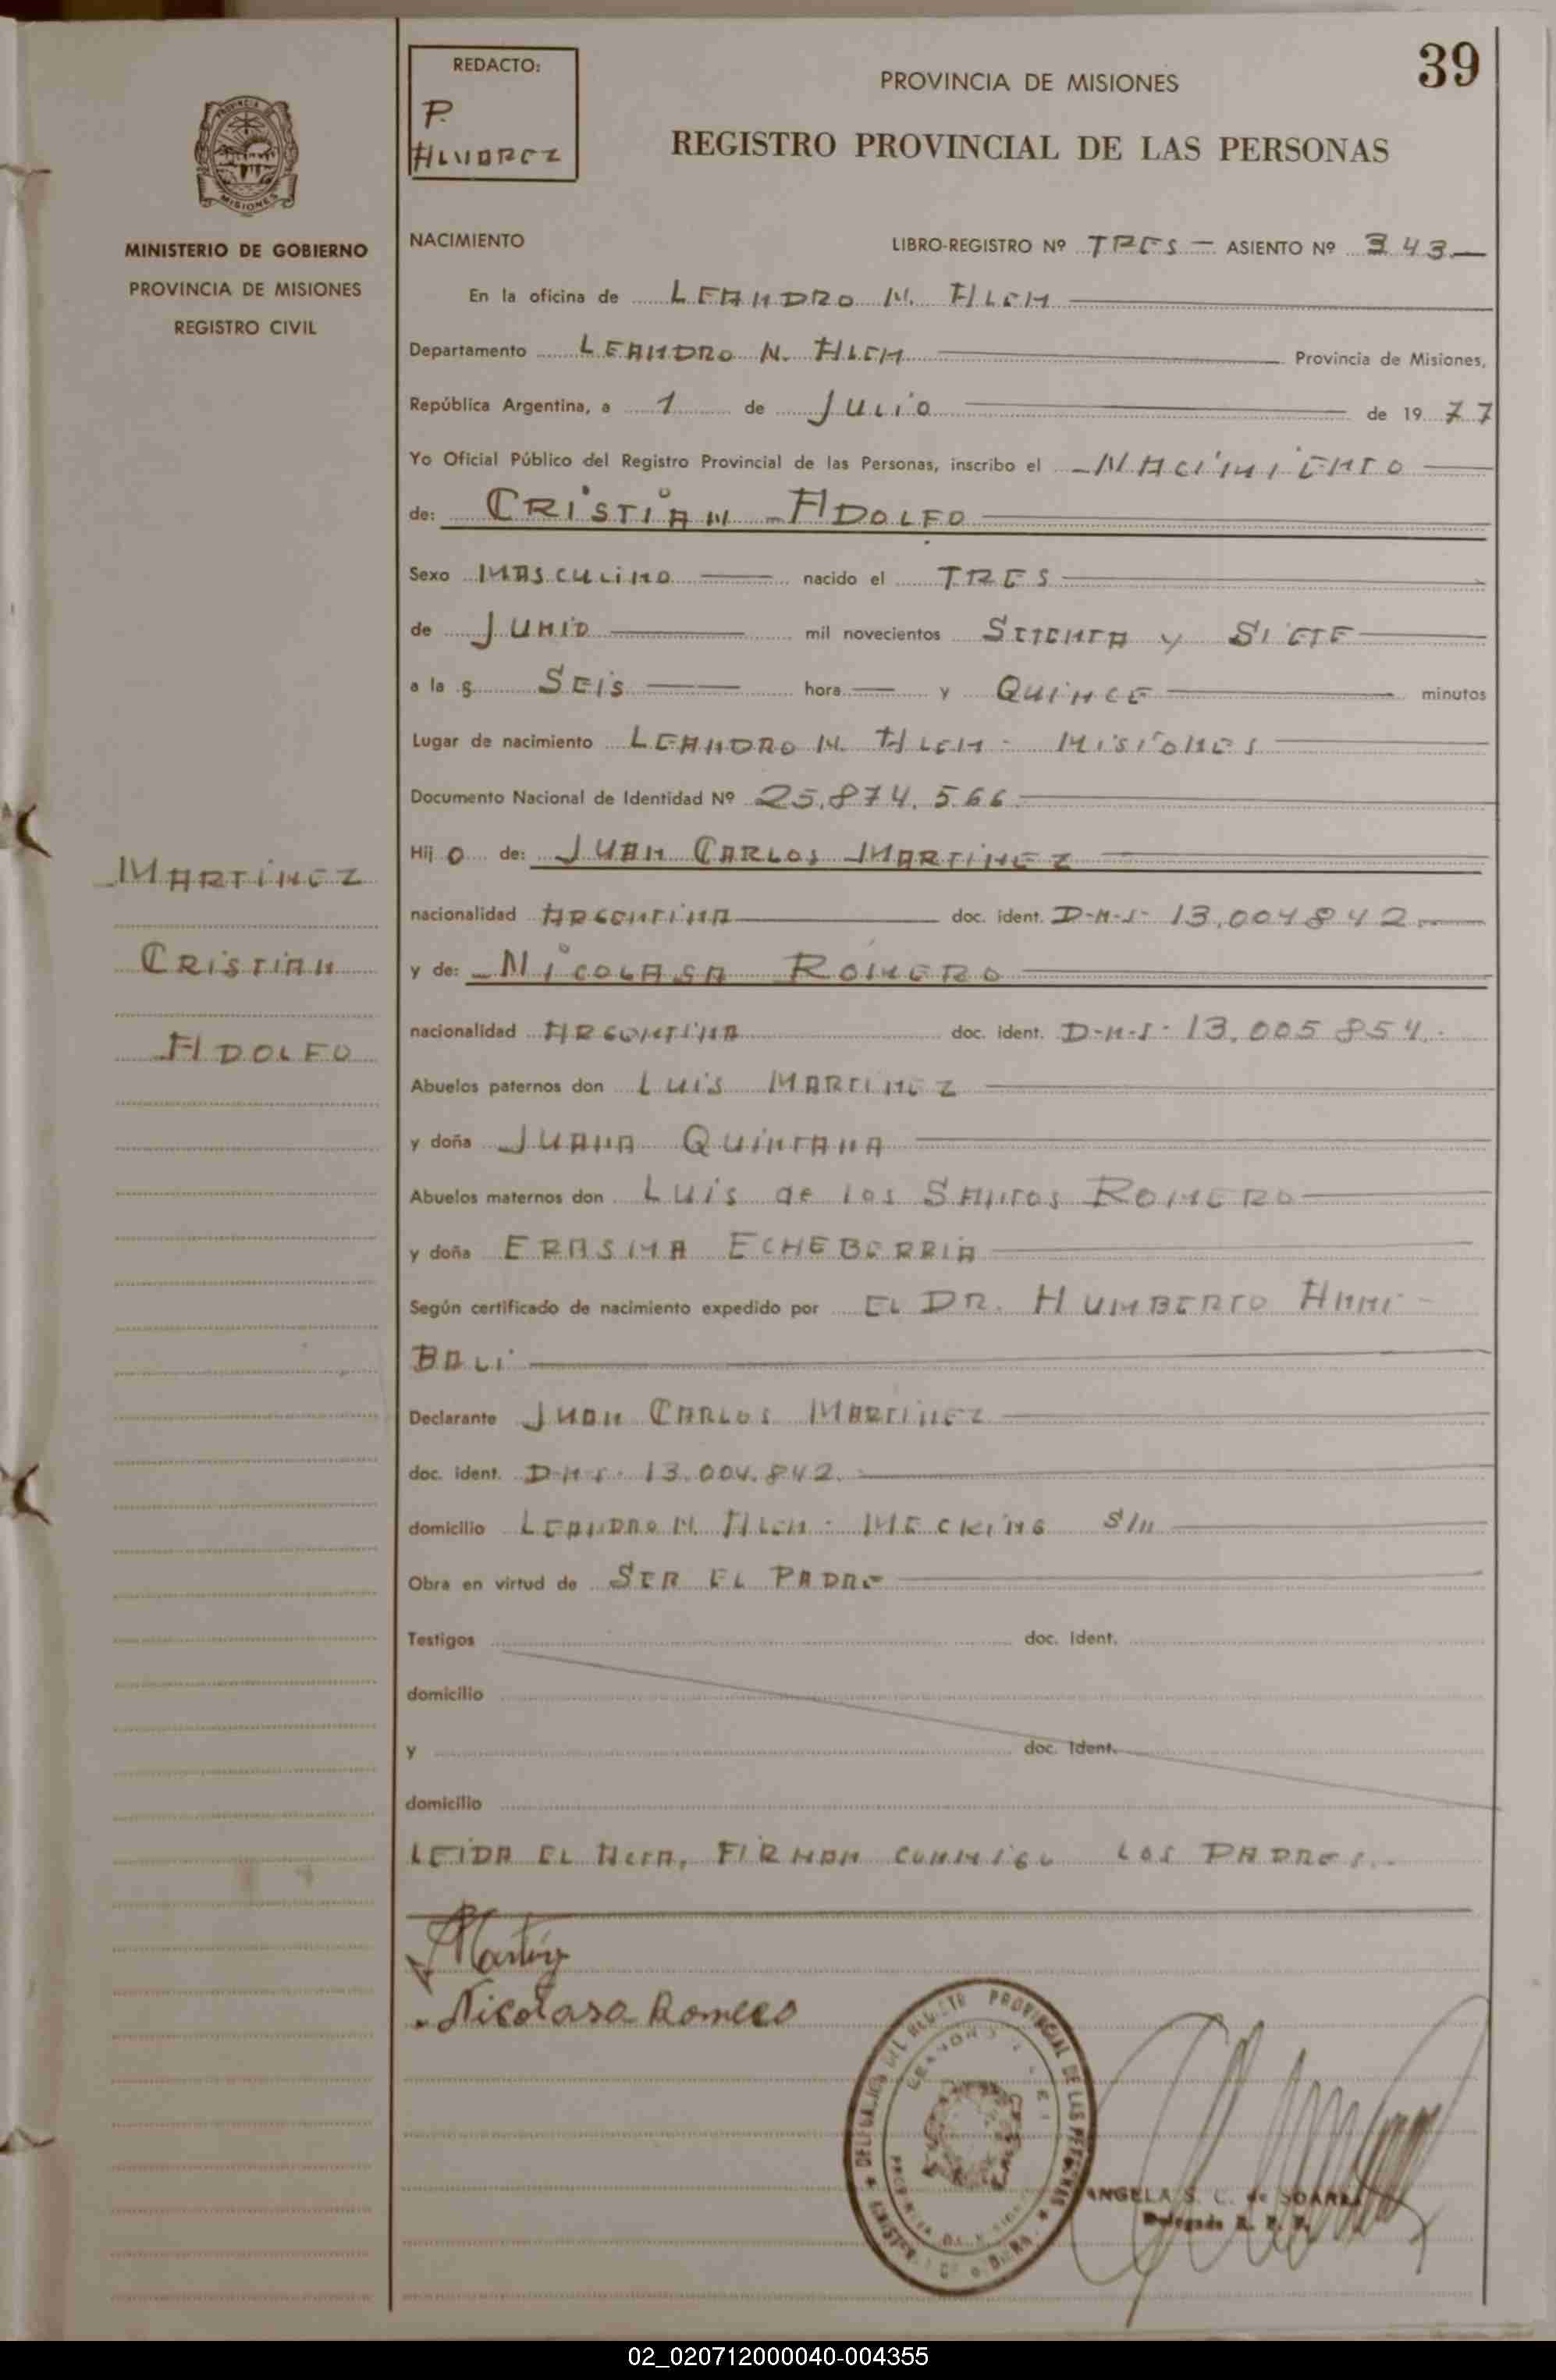 39
REDACTO:
P.
ALVAREZ
PROVINCIA DE MISIONES
REGISTRO PROVINCIAL DE LAS PERSONAS
MISIONES
MINISTERIO DE GOBIERNO
PROVINCIA DE MISIONES
REGISTRO CIVIL
MARTINEZ
CRISTIAN
ADOLFO
NACIMIENTO LIBRO-REGISTRO Nº TRES - ASIENTO Nº 343
En la oficina de LEANDRO N. ALEM
Departamento LEANDRO N. ALEM Provincia de Misiones,
República Argentina, a 1 de JULIO de 1977
Yo Oficial Público del Registro Provincial de las Personas, inscribo el NACIMIENTO
de: CRISTIAN ADOLFO
Sexo MASCULINO nacido el TRES
de JUNIO mil novecientos SETENTA y SIETE
a la s SEIS hora y QUINCE minutos
Lugar de nacimiento LEANDRO N. ALEM - MISIONES
Documento Nacional de Identidad Nº 25.874.566
Hij O de: JUAN CARLOS MARTINEZ
nacionalidad ARGENTINA doc. ident. D-N-I- 13.004842
y de: NICOLASA ROMERO
nacionalidad ARGENTINA doc. ident. D-N-I- 13.005854.
Abuelos paternos don LUIS MARTINEZ
y doña JUANA QUINTANA
Abuelos maternos don LUIS de los SANTOS ROMERO
y doña ERASMA ECHEBERRIA
Según certificado de nacimiento expedido por EL DR. HUMBERTO ANNI-
BALI
Declarante JUAN CARLOS MARTINEZ
doc. ident. DNI. 13.004.842.
domicilio LEANDRO N. ALEM - MECKING S/N
Obra en virtud de SER EL PADRE
Testigos doc. ident.
domicilio
y doc. ident.
domicilio
LEIDA EL ACTA, FIRMAN CONMIGO LOS PADRES.-
Nicolasa Romero
PROVINCIAL DE LAS PERSONAS
ANGELA S. C. de SOAREZ
Delegada R. P. P.
02_020712000040-004355